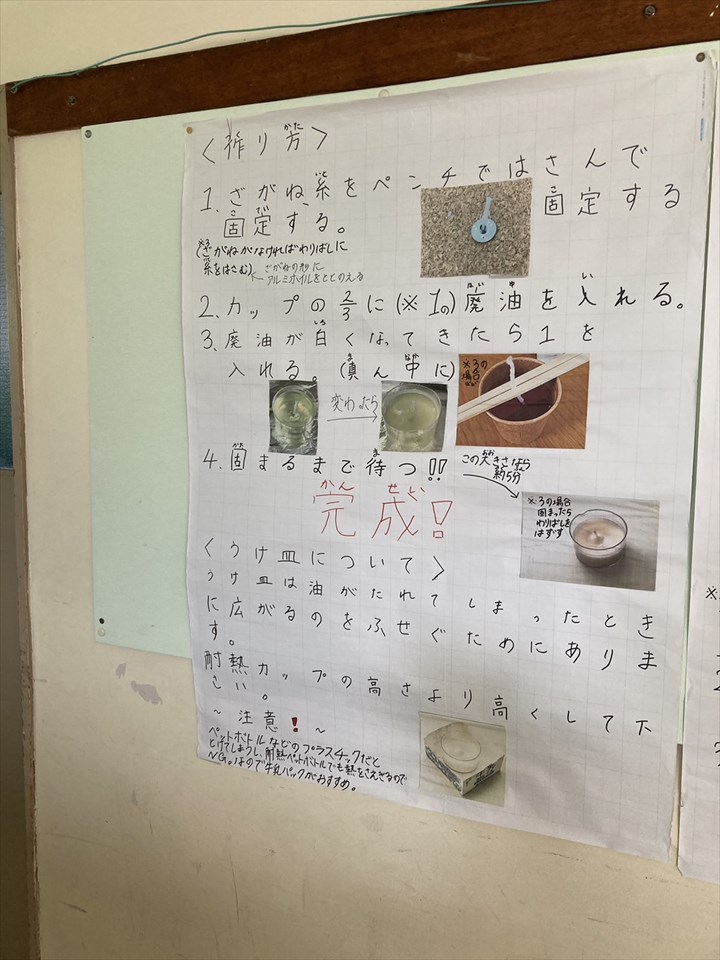 〈作り方〉
1、ざがね、糸をペンチではさんで
固定する。
固定する
(※3ざがねがなければわりばしに
糸をはさむ)
←ざがねの形に
アルミホイルをととのえる
2、カップの2/3に(※1の)廃油を入れる。
3、廃油が白くなってきたら1を
入れる。(真ん中に)
変わったら
※3の
場合
4、固まるまで待つ!!
この大きさなら
約5分
完成!
※3の場合
固まったら
わりばしを
はずす
〈うけ皿について〉
うけ皿は油がたれてしまったとき
に広がるのをふせぐためにありま
す。
耐熱カップの高さより高くして下
さい。
~注意!~
ペットボトルなどのプラスチックだと
とけてしまうし、耐熱ペットボトルでも熱をさえぎるので
NG。なので牛乳パックがおすすめ。